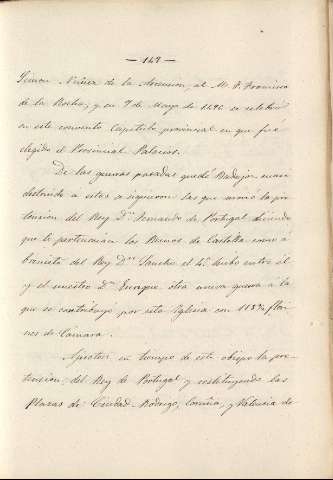 — 147 —
Simon Nuñez de la Asuncion, al M. F. Francisco
de la Rocha, y en 7 de Mayo de 1690 se celebró
en este convento Capitulo provincial en que fué
elegido el Provincial Palacios.
De las guerras pasadas quedó Badajoz muy
destruido á estas se siguieron las que movió la pre
tension del Rey Dn. Fernando de Portugal diciendo
que le pertenecian los Reinos de Castilla como á
biznieto del Rey Dn. Sancho el 4º hubo entre él
y el nuestro Dn. Enrique otra nueva guerra á la
que se contribuyó por esta Iglesia con flori
nes de Cámara.
en tiempo de este obispo la pre
tension del Rey de Portugal y restituyendo las
Plazas de Ciudad-Rodrigo, Coruña, y Valencia de